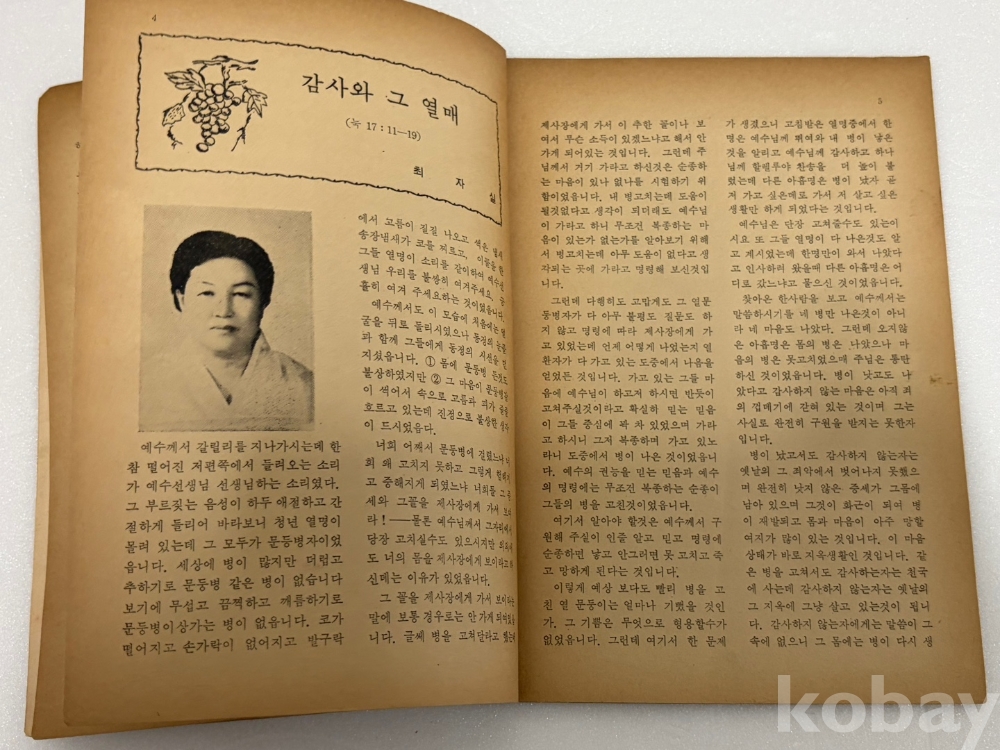 4
감사와 그 열매
(눅 17 : 11—19)
최 자 실
예수께서 갈릴리를 지나가시는데 한
참 떨어진 저편쪽에서 들려오는 소리
가 예수선생님 선생님하는 소리였다.
그 부르짖는 음성이 하두 애절하고 간
절하게 들리어 바라보니 청년 열명이
몰려 있는데 그 모두가 문둥병자이였
읍니다. 세상에 병이 많지만 더럽고
추하기로 문둥병 같은 병이 없습니다
보기에 무섭고 끔찍하고 깨름하기로
문둥병이상가는 병이 없읍니다. 코가
떨어지고 손가락이 없어지고 발구락
에서 고름이 질질 나오고 썩은
송장냄새가 코를 찌르고, 이꼴을 한
그들 열명이 소리를 같이하여 예수선
생님 우리를 불쌍히 여겨주세요,
휼히 여겨 주세요하는 것이였읍니다.
예수께서도 이 모습에 처음에는
굴을 뒤로 돌리시었으나 동정의 눈물
과 함께 그들에게 동정의 시선을 던
지셨읍니다. ① 몸에 문둥병 든것도
불상하였지만 ② 그 마음이
이 썩어서 속으로 고름과 피가
흐르고 있는데 진정으로 불상한
이 드시였읍다.
너희 어째서 문둥병에 걸렸느냐 너
희 왜 고치지 못하고 그렇게
고 중해지게 되였느냐 너희들
세와 그꼴을 제사장에게 가서 보여
라! ──물론 예수님께서 그자리에서
당장 고치실수도 있으시지만
도 너의 몸을 제사장에게 보이라고 하
신데는 이유가 있었읍니다.
그 꼴을 제사장에게 가서 보이라는
말에 보통 경우로는 안가게 되여있읍
니다. 글쎄 병을 고쳐달라고 했는데
5
제사장에게 가서 이 추한 꼴이나 보
여서 무슨 소득이 있겠느냐고 해서 안
가게 되어있는 것입니다. 그런데 주
님께서 거기 가라고 하신것은 순종하
는 마음이 있나 없나를 시험하기 위
함이었읍니다. 내 병고치는데 도움이
될것없다고 생각이 되더래도 예수님
이 가라고 하니 무조건 복종하는 마
음이 있는가 없는가를 알아보기 위해
서 병고치는데 아무 도움이 없다고 생
각되는 곳에 가라고 명령해 보신것입
니다.
그런데 다행히도 고맙게도 그 열문
둥병자가 다 아무 불평도 질문도 하
지 않고 명령에 따라 제사장에게 가
고 있었는데 언제 어떻게 나었는지 열
환자가 다 가고 있는 도중에서 나음을
얻었든 것입니다. 가고 있는 그들 마
음에 예수님이 하고저 하시면 반듯이
고쳐주실것이라고 확실히 믿는 믿음
이 그들 중심에 꽉 차 있었으며 가라
고 하시니 그저 복종하며 가고 있노
라니 도중에서 병이 나은 것이었읍니
다. 예수의 권능을 믿는 믿음과 예수
의 명령에는 무조건 복종하는 순종이
그들의 병을 고친것이였읍니다.
여기서 알아야 할것은 예수께서 구
원해 주실이 인줄 알고 믿고 명령에
순종하면 낳고 안그러면 못 고치고 죽
고 망하게 된다는 것입니다.
이렇게 예상 보다도 빨리 병을 고
친 열 문둥이는 얼마나 기뻤을 것인
가. 그 기쁨은 무엇으로 형용할수가
없었읍니다. 그런데 여기서 한 문제
가 생겼으니 고침받은 열명중에서 한
명은 예수님께 뵈여와 내 병이 낳은
것을 알리고 예수님께 감사하고 하나
님께 할렐루야 찬송을 더 높이 불
렀는데 다른 아홉명은 병이 났자 곧
저 가고 싶은데로 가서 저 살고 싶은
생활만 하게 되었다는 것입니다.
예수님은 단장 고쳐줄수도 있는이
시요 또 그들 열명이 다 나은것도 알
고 계시었는데 한명만이 와서 나았다
고 인사하러 왔을때 다른 아홉명은 어
디로 갔느냐고 물으신 것이였읍니다.
찾아온 한사람을 보고 예수께서는
말씀하시기를 네 병만 나은것이 아니
라 네 마음도 나았다. 그런데 오지않
은 아홉명은 몸의 병은 나았으나 마
음의 병은 못고치였으매 주님은 통탄
하신 것이였읍니다. 병이 낫고도 나
았다고 감사하지 않는마음은 아직 죄
의 껍메기에 갇혀 있는 것이며 그는
사실로 완전히 구원을 받지는 못한자
입니다.
병이 났고서도 감사하지 않는자는
옛날의 그 죄악에서 벗어나지 못했으
며 완전히 낫지 않은 증세가 그몸에
남아 있으며 그것이 화근이 되여 병
이 재발되고 몸과 마음이 아주 말할
여지가 많이 있는 것입니다. 이 마음
상태가 바로 지옥생활인 것입니다. 같
은 병을 고쳐서도 감사하는자는 천국
에 사는데 감사하지 않는자는 옛날의
그 지옥에 그냥 살고 있는것이 됩니
다. 감사하지 않는자에게는 말씀이 그
속에 없으니 그 몸에는 병이 다시 생
kobay